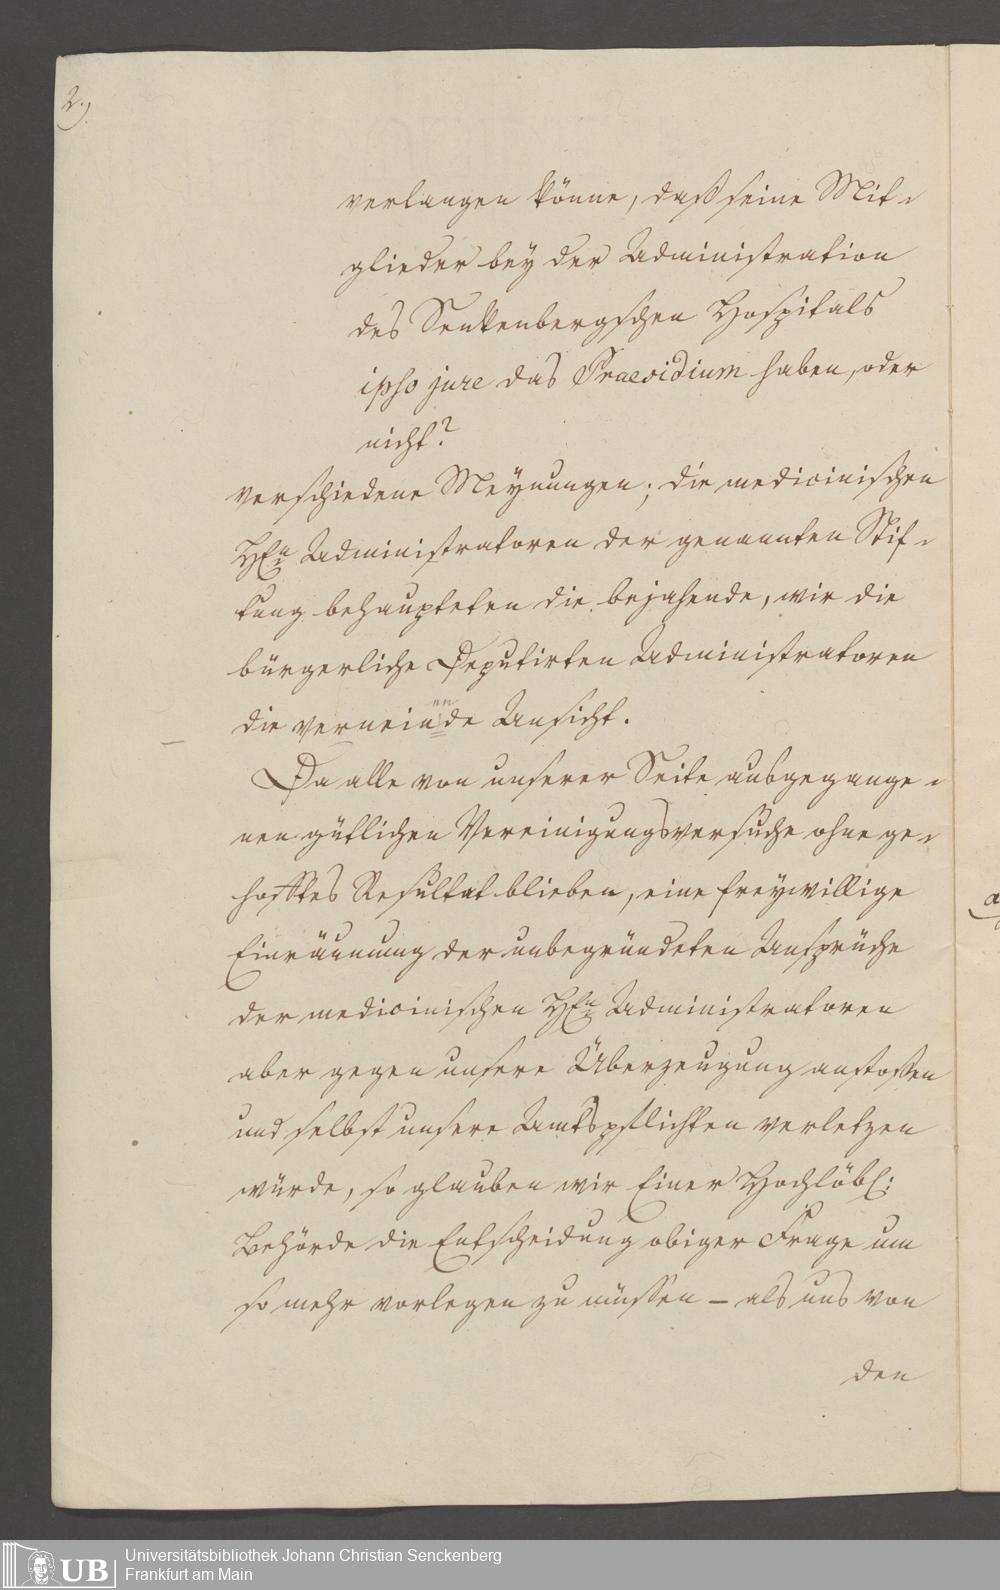 2.)
verlangen könne, daß seine Mit-
glieder bey der Administration
des Senkenbergschen Hospitals
ipso jure das Praesidium haben, oder
nicht?
verschiedene Meynungen; die medicinischen
HEn Administratoren der genannten Stif-
tung behaupteten die bejahende, wir die
bürgerliche Deputirten Administratoren
die verneinde Ansicht.
Da alle von unserer Seite ausgegange-
nen gütlichen Vereinigungsversuche ohne ge-
hofftes Resultat blieben, eine freywillige
Einräumung der unbegründeten Ansprüche
der medicinischen HEn Administratoren
aber gegen unsere Überzeugung anstoßen
und selbst unsere Amtspflichten verletzen
würde, so glauben wir Einer Hochlöbl:
Behörde die Entscheidung obiger Frage um
so mehr vorlegen zu müssen – als uns von
den
UB
Universitätsbibliothek Johann Christian Senckenberg
Frankfurt am Main